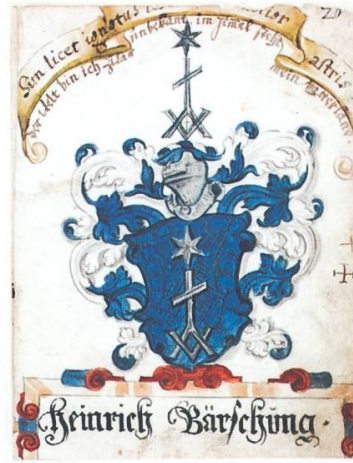 20
Sum licet ignotus astris
der Welt bin ich zwar unbekant, im Himel steht mein
Heinrich Bärschung.